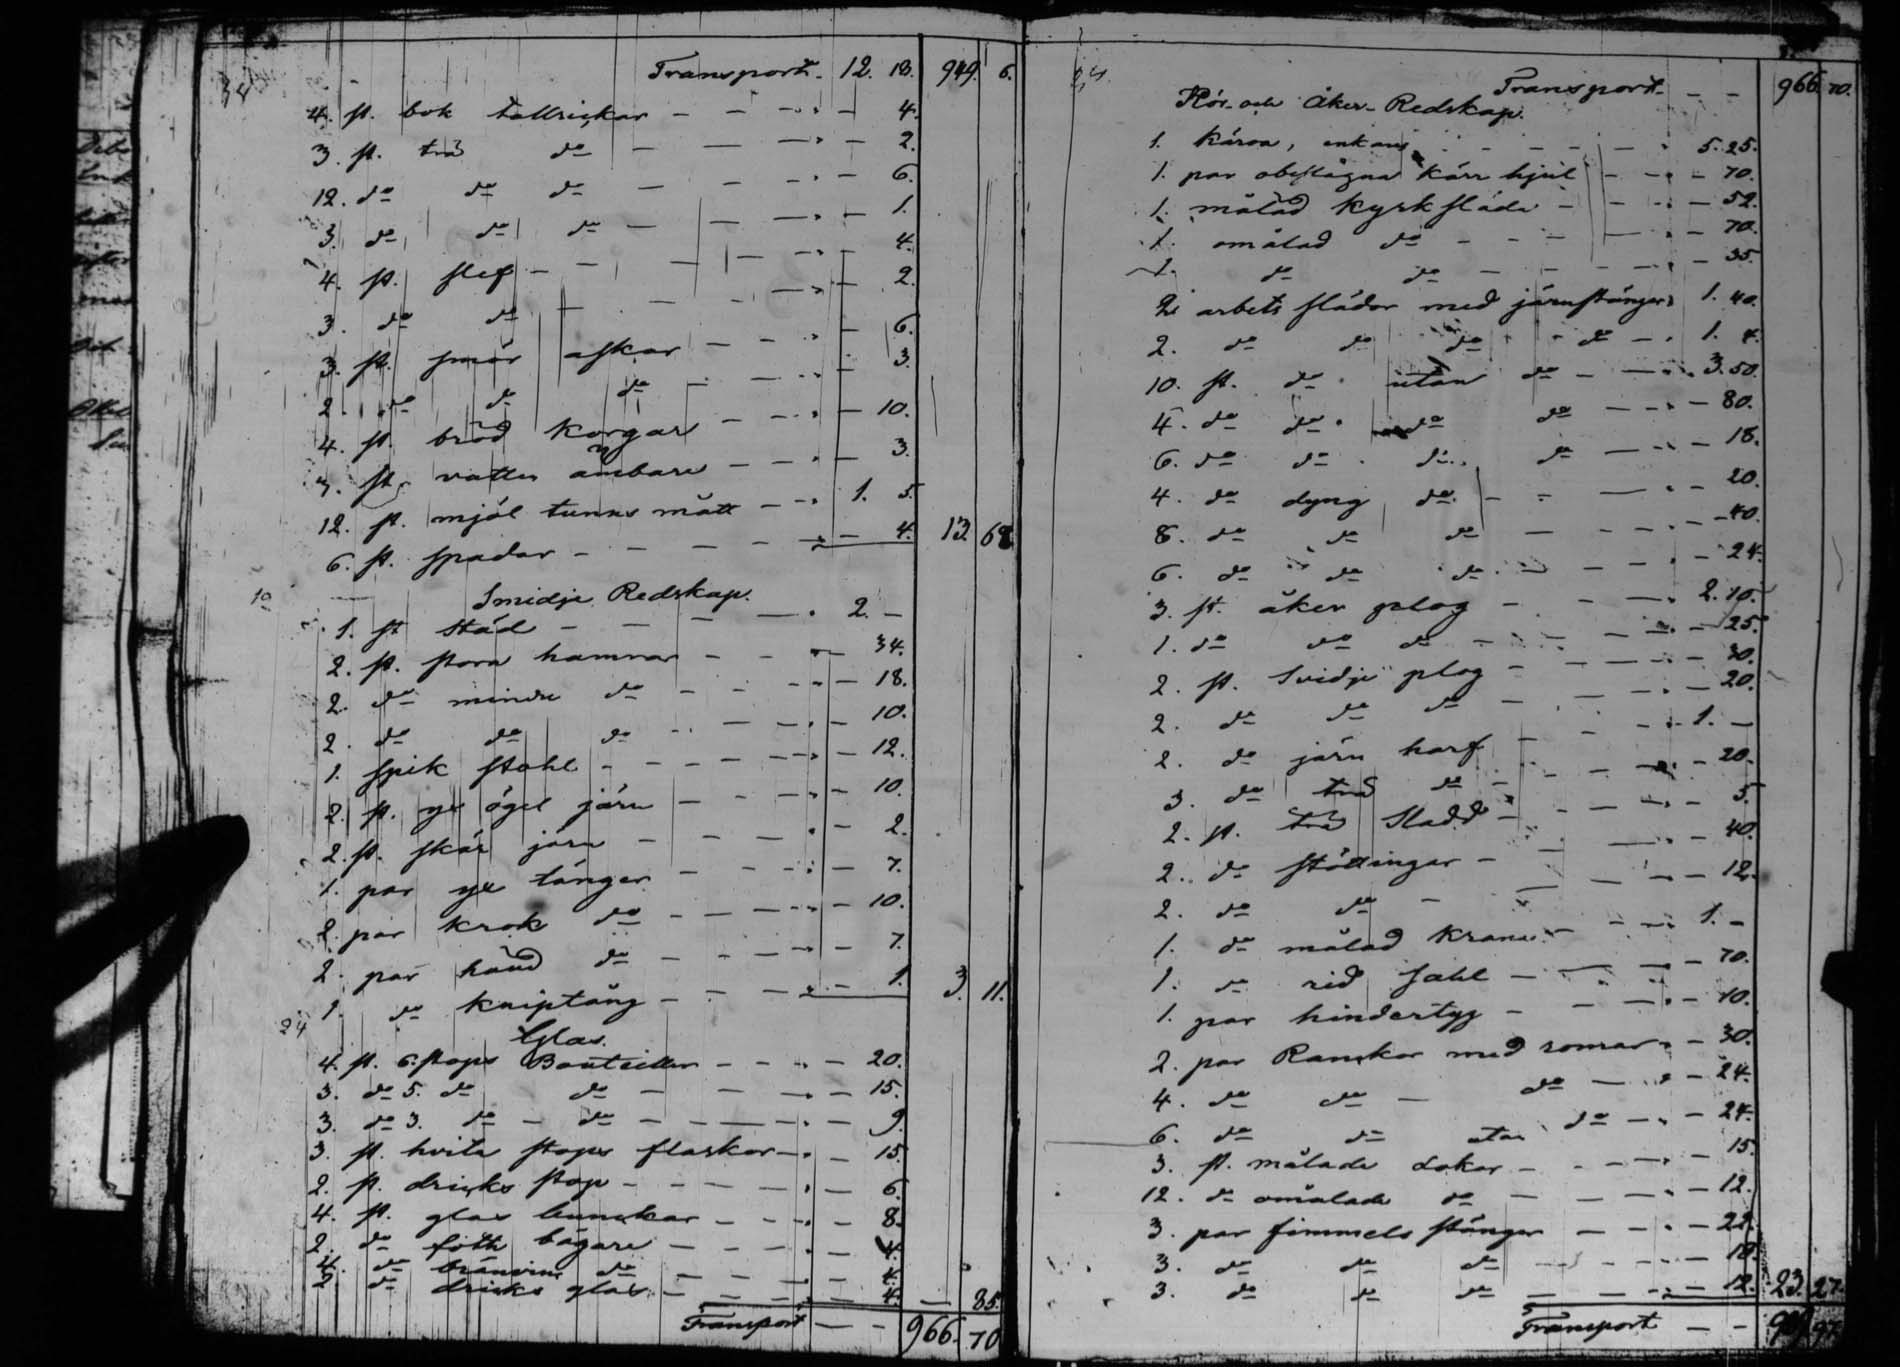 Transport. 12. 18. 949. 6.
4. st. bok tallrickar - - - - 4.
3. st. trä do - - - 2.
12. do do do - - - 6.
3. do do do - - - 1.
4. st. slef - - - 4.
3. do do - - - 2.
3. st. smör askar - - - 6.
2. do do do - - - 3.
4. st. bröd korgar - - - 10.
3. st. vatten ämbare - - - 3.
12. st. mjöl tunns mått - - 1. 5.
6. st. spadar - - - - 4. 13 68
10 Smidje Redskap.
1. st städ - - - - 2. -
2. st. stora hamrar - - - 34.
2. do mindre do - - - 18.
2. do do do - - - 10.
1. spik stahl - - - 12.
2. st. yx ögel järn - - - 10.
2. st. skär järn - - - 2.
1. par yx tänger - - - 7.
2. par krok do - - - 10.
2. par hand do - - - 7.
1. do kniptång - - - 1. 3. 11.
24 Glas.
4. st. 6. stops Bouteiller - - - 20.
3. do 5. do do - - - 15.
3. do 3. do - do - - - 9.
3. st. hvita stops flaskor - - 15.
2. st. dricks stop - - - 6.
4. st. glas bunckar - - - 8.
2. do föth bägare - - - 4.
4. do bränvins do - - - 4.
2 do dricks glas - - - 4. - 85.
Transport - - 966. 70
Transport - - 966. 70.
Kör- och Åker-Redskap.
1. kärra, - - - 5. 25.
1. par obeslagna kärr hjul - - - 70.
1. målad kyrk släde - - - 52.
1. omålad do - - - 70.
1. do do - - - 35.
2 arbets slädor med järnstänger 1. 40.
2. do do do do - 1. 4.
10. st. do utan do - - 3. 50.
4. do do. do do - - - 80.
6. do do. do. do - - - 18.
4. do dyng do. - - - 20.
8. do do do - - - 40.
6. do do do - - - 24.
3. st. åker plog - - - 2. 10.
1. do do do - - - 25.
2. st. Svidje plog - - - 30.
2. do do do - - - 20.
2. do järn harf - - - 1. -
3. do trä do - - - 20.
2. st. trä Sladd - - - 5.
2. do stöttingar - - - 40.
2. do do - - - 12.
1. do målad - - - 1. -
1. do rid sahl - - - 70.
1. par hindertyg - - - 10.
2. par Ranckor med romar - 30.
4. do do - do - - 24.
6. do do utan do - - 24.
3. st. målade Lokor - - - 15.
12. do omålade do - - - 12.
3. par fimmels stänger - - - 22.
3. do do do - - - 18.
3. do do do - - - 12. 23. 27.
Transport - - 97.